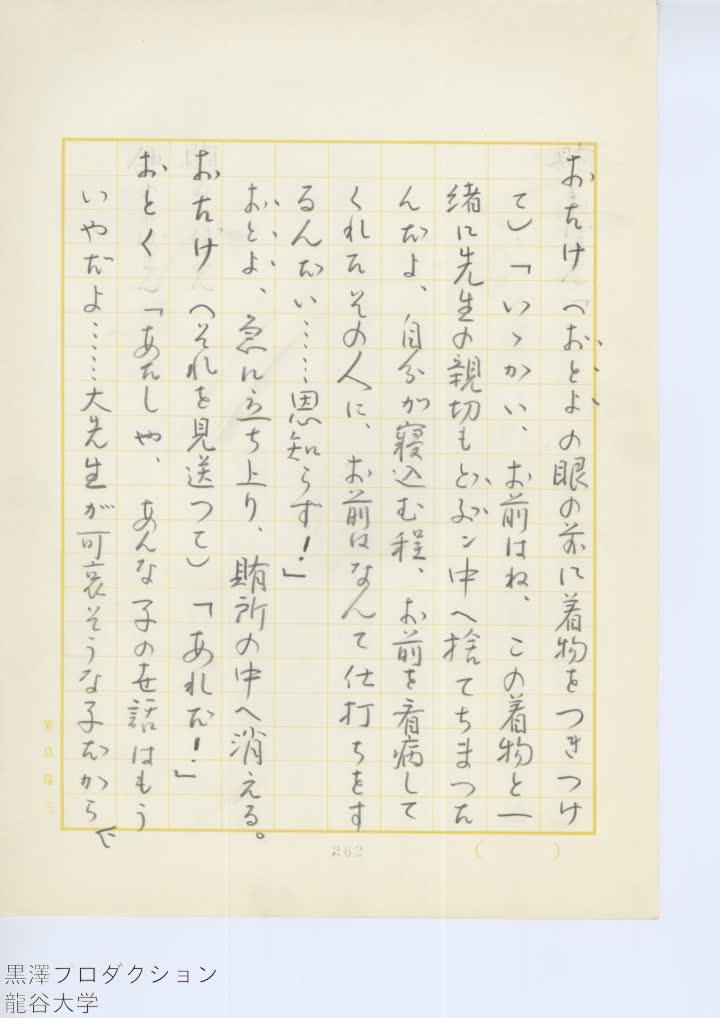 おたけ（おとよの眼の前に着物をつきつけ
て）「いゝかい、お前はね、この着物と一
緒に先生の親切もどぶン中へ捨てちまつた
んだよ、自分が寝込む程、お前を看病して
くれたその人に、お前はなんて仕打ちをす
るんだい……恩知らず！」
おとよ、急に立ち上り、賄所の中へ消える。
おたけ（それを見送つて）「あれだ！」
おとく「あたしや、あんな子の世話はもう
いやだよ……大先生が可哀そうな子だから
262
（　　）
黒澤プロダクション
龍谷大学